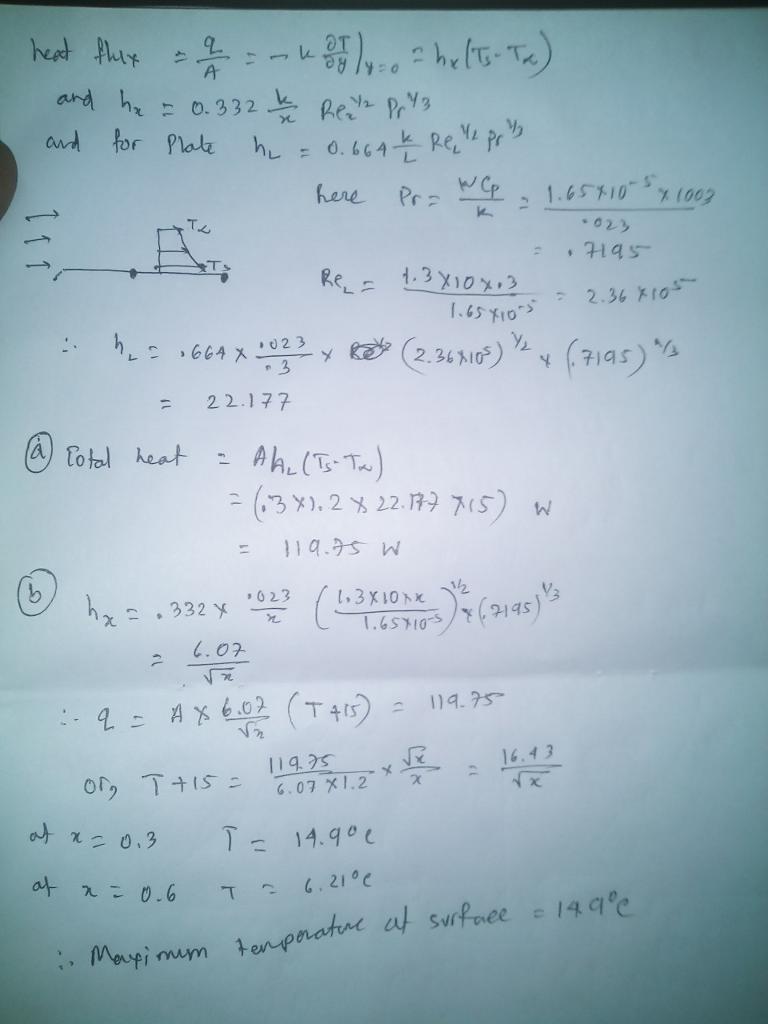 heat flux = q/A = -k ∂T/∂y)y=0 = hx(Ts-T∝)
and hx = 0.332 k/x Rex^1/2 Pr^1/3
and for Plate hL = 0.664 k/L ReL^1/2 Pr^1/3
here Pr = WCp/k = 1.65×10^-5 × 1003/.023
T∝
= .7195
Ts
ReL = 1.3×10×.3/1.65×10^-5 = 2.36×10^5
∴ hL = .664 × .023/.3 × (2.36×10^5)^1/2 × (.7195)^1/3
= 22.177
(a) Total heat = AhL(Ts-T∞)
= (.3×1.2×22.177×15) W
= 119.75 W
(b) hx = .332 × .023/x (1.3×10×x/1.65×10^-5)^1/2 × (.7195)^1/3
= 6.07/√x
∴ q = A × 6.07/√x (T+15) = 119.75
or, T+15 = 119.75/6.07×1.2 × √x/x = 16.43/√x
at x = 0.3 T = 14.9°C
at x = 0.6 T = 6.21°C
∴ Maximum temperature at surface = 14.9°C